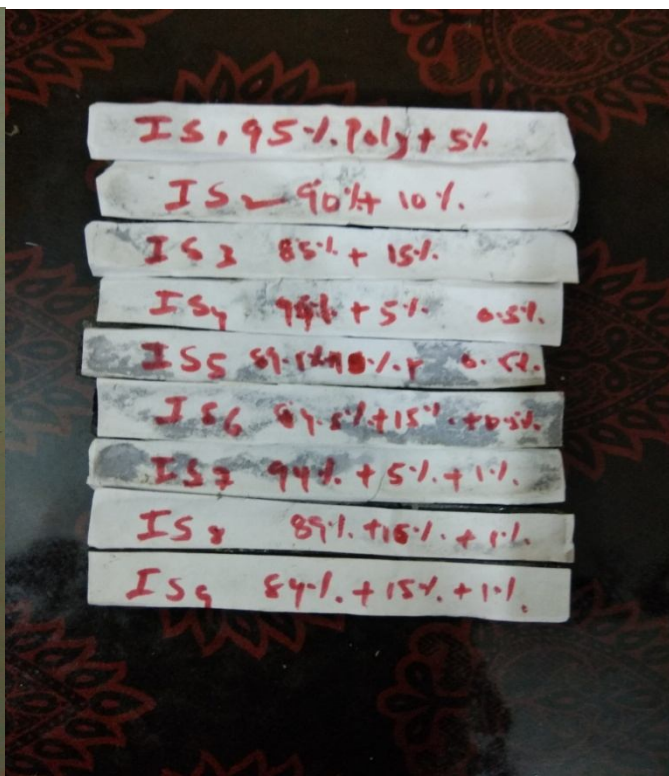 IS1 95%. Poly + 5%
IS2 90% + 10%.
IS3 85% + 15%.
IS4 + 5% 0.5%.
IS5 89.5%
IS6 84.5% + 15% + 0.5%.
IS7 94% + 5% + 1%.
IS8 89%. + 1%.
IS9 84%. + 15%. + 1%.